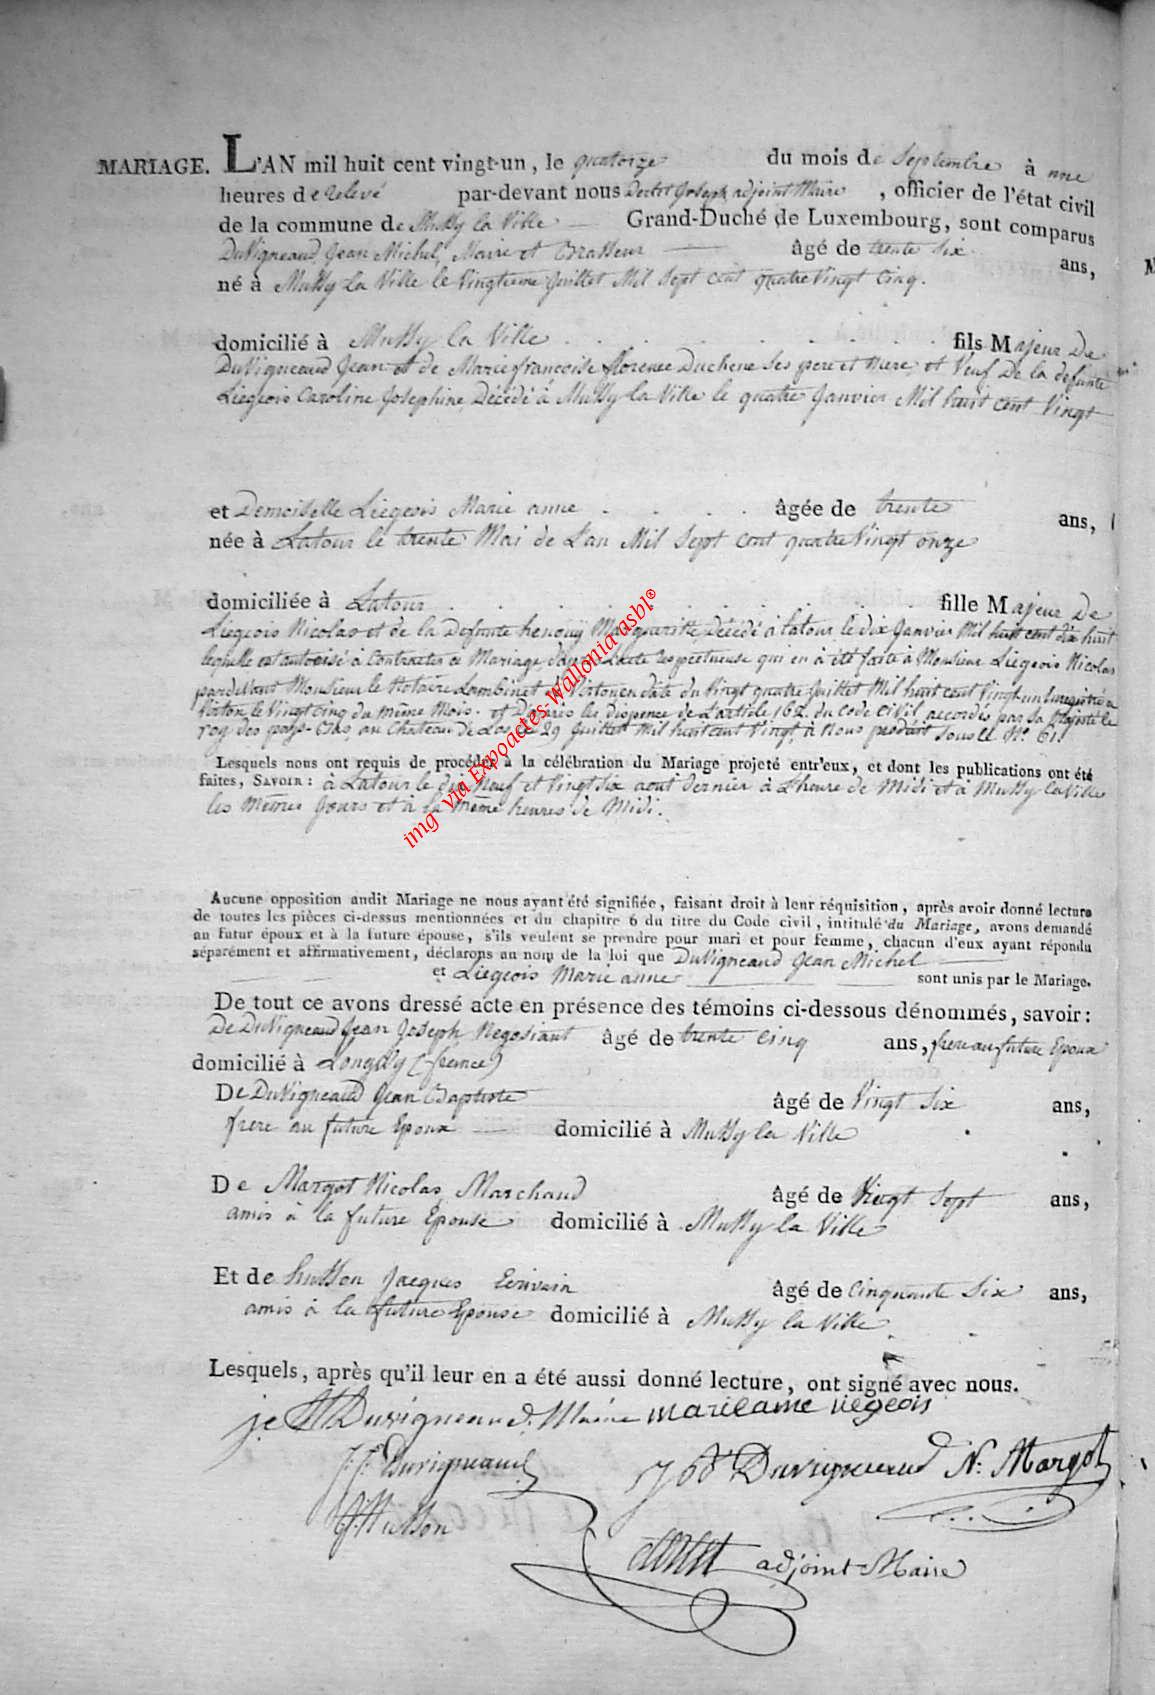 MARIAGE. L'AN mil huit cent vingt-un, le quatorze du mois de Septembre à une
heures de relevé par-devant nous Joseph adjoint Maire, officier de l'état civil
de la commune de Mussy la Ville Grand-Duché de Luxembourg, sont comparus
Duvigneaud Jean Michel, Maire et Brasseur âgé de trente Six ans,
né à Mussy La Ville le Vingtieme Juillet Mil Sept cent quatre Vingt Cinq.
domicilié à Mussy la Ville fils Majeur De
Duvigneaud Jean et de Marie françoise florence Duchene Ses pere et Mere, et Veuf De la defunte
Liegeois Caroline Josephine, Décédé à Mussy la Ville le quatre Janvier Mil huit cent Vingt
et Demoiselle Liegeois Marie anne âgée de trente ans,
née à Latour le trente Mai de L'an Mil Sept cent quatre Vingt onze
domiciliée à Latour fille Majeur De
Liegeois Nicolas et de la Defunte henquij Margueritte Décédé à Latour le dix Janvier Mil huit cent dix huit
lequelle est autorisé à Contracter ce Mariage Lacte respectueuse qui en à été faite à Monsieur Liegeois Nicolas
pardevant Monsieur le Notaire Lambinet Virton en date du Vingt quatre Juillet Mil huit cent Vingt-un Enregistré a
Virton le Vingt Cinq du même Mois. et D'après les dispence de L'article 162 du Code Civil accordés par Sa Majesté le
roy des pays-Bas au Chateau de 29 Juillet Mil huit cent Vingt, à Nous produit Sous N.º 61.
Lesquels nous ont requis de procéder à la célébration du Mariage projeté entr'eux, et dont les publications ont été
faites, SAVOIR: à Latour le dix Neuf et Vingt Six aout dernier à L'heure de Midi et à Mussy la Ville
les Mêmes Jours et à la même heures de Midi.
Aucune opposition audit Mariage ne nous ayant été signifiée, faisant droit à leur réquisition, après avoir donné lecture
de toutes les pièces ci-dessus mentionnées et du chapitre 6 du titre du Code civil, intitulé du Mariage, avons demandé
au futur époux et à la future épouse, s'ils veulent se prendre pour mari et pour femme, chacun d'eux ayant répondu
séparément et affirmativement, déclarons au nom de la loi que Duvigneaud Jean Michel
et Liegeois Marie anne sont unis par le Mariage.
De tout ce avons dressé acte en présence des témoins ci-dessous dénommés, savoir:
De Duvigneaud Jean Joseph Negosiant âgé de trente Cinq ans, frere au future Epoux
domicilié à Longwy (france)
De Duvigneaud Jean Baptiste âgé de Vingt Six ans,
frere au future Epoux domicilié à Mussy la Ville
De Margot Nicolas, Marchand âgé de Vingt Sept ans,
amis à la future Epouse domicilié à Mussy la Ville
Et de husson Jacques Ecrivain âgé de Cinquante Six ans,
amis à la future Epouse domicilié à Mussy la Ville
Lesquels, après qu'il leur en a été aussi donné lecture, ont signé avec nous.
Duvigneaud. Maire marieanne liegeois
J. J. Duvigneaud Duvigneaud N. Margot
J. Husson
adjoint-Maire
img via Expoactes-Wallonia asbl®